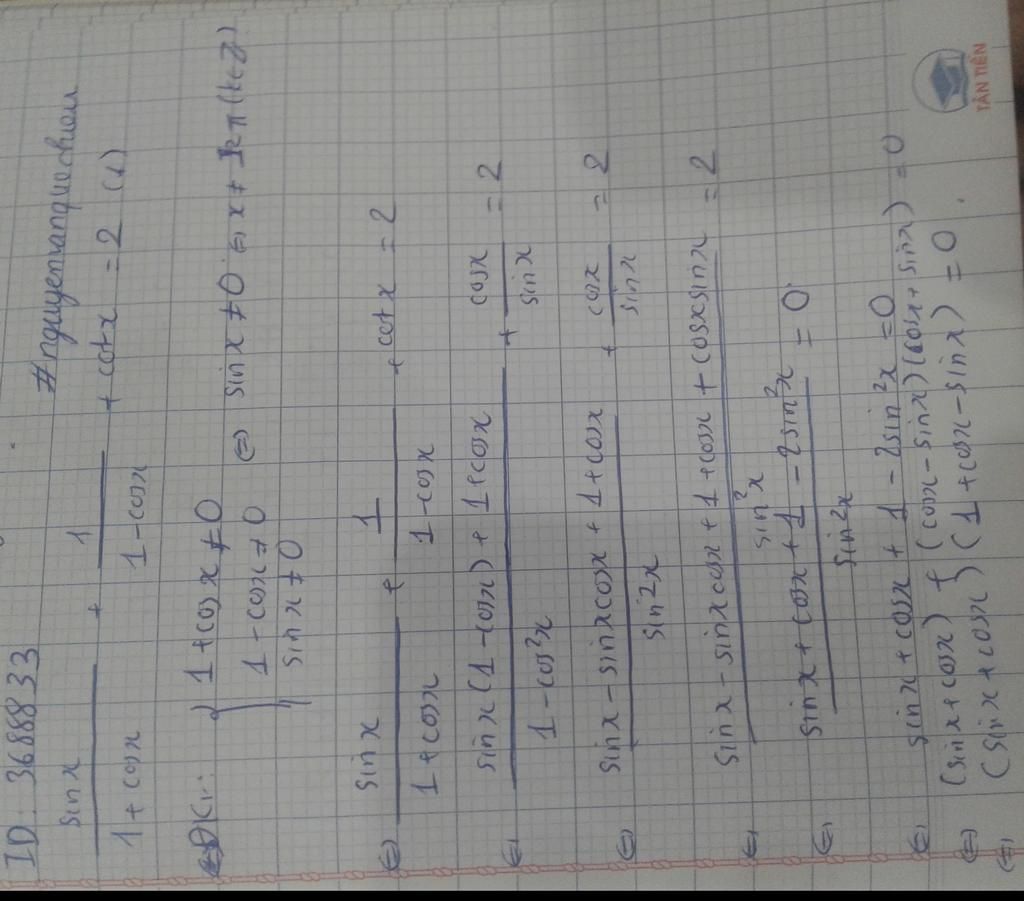 ID: 3688833
#nguyenvanquechieu
sin x / (1 + cos x) + 1 / (1 - cos x) + cot x = 2 (1)
ĐK: { 1 + cos x ≠ 0
1 - cos x ≠ 0 ⇔ sin x ≠ 0 ⇔ x ≠ kπ (k ∈ Z)
sin x ≠ 0
⇔ sin x / (1 + cos x) + 1 / (1 - cos x) + cot x = 2
⇔ (sin x (1 - cos x) + 1 + cos x) / (1 - cos²x) + cos x / sin x = 2
⇔ (sin x - sin x cos x + 1 + cos x) / sin²x + cos x / sin x = 2
⇔ (sin x - sin x cos x + 1 + cos x + cos x sin x) / sin²x = 2
⇔ (sin x + cos x + 1 - 2sin²x) / sin²x = 0
⇔ sin x + cos x + 1 - 2sin²x = 0
⇔ (sin x + cos x) + (cos x - sin x)(cos x + sin x) = 0
⇔ (sin x + cos x) (1 + cos x - sin x) = 0
TÂN TIẾN